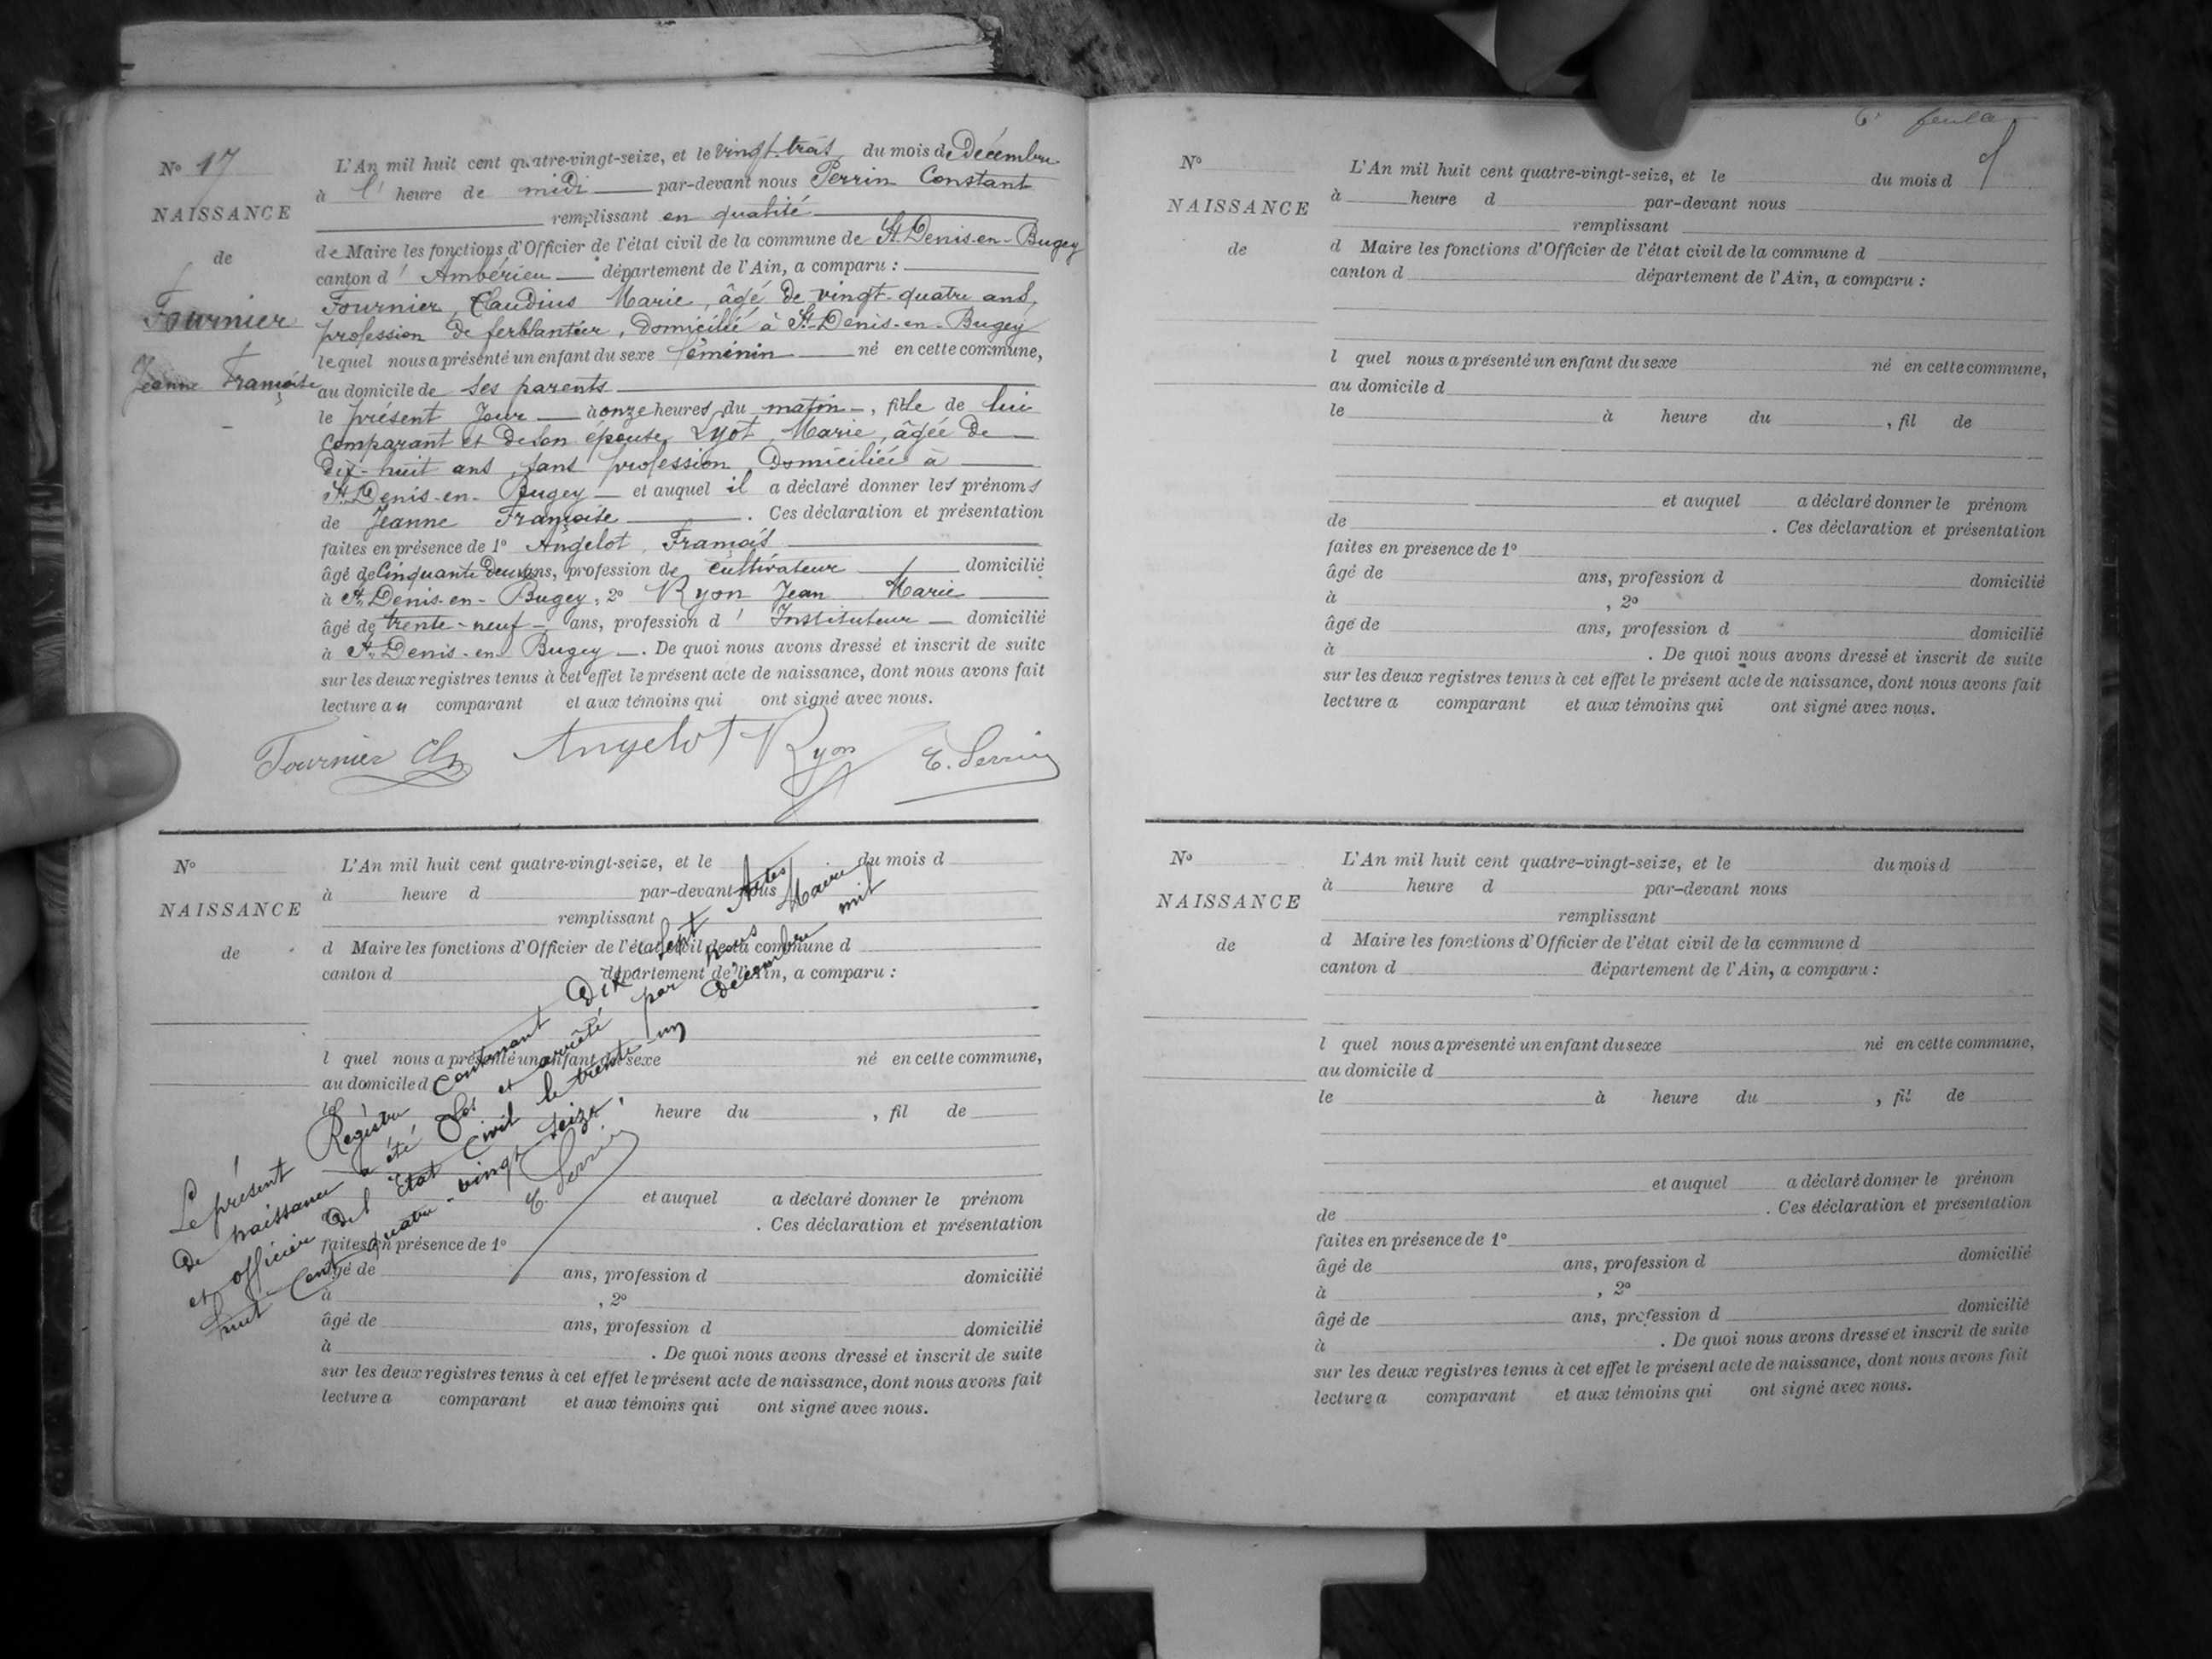 No 17
NAISSANCE
de
Fournier
Jeanne Françoise
L'An mil huit cent quatre-vingt-seize, et le vingt-trois du mois de Décembre
à l' heure de midi par-devant nous Perrin Constant
remplissant en qualité
de Maire les fonctions d'Officier de l'état civil de la commune de St-Denis-en-Bugey
canton d' Ambérieu département de l'Ain, a comparu :
Fournier, Claudius Marie, âgé de vingt-quatre ans,
profession de ferblantier, domicilié à St-Denis-en-Bugey
lequel nous a présenté un enfant du sexe féminin né en cette commune,
au domicile de ses parents
le présent jour à onze heures du matin, fille de lui
comparant et de son épouse Lyot, Marie, âgée de
dix-huit ans, sans profession, domiciliée à
St-Denis-en-Bugey et auquel il a déclaré donner les prénoms
de Jeanne Françoise. Ces déclaration et présentation
faites en présence de 1° Angelot, François
âgé de Cinquante deux ans, profession de cultivateur domicilié
à St-Denis-en-Bugey, 2° Ryon Jean Marie
âgé de trente-neuf ans, profession d' Instituteur domicilié
à St-Denis-en-Bugey. De quoi nous avons dressé et inscrit de suite
sur les deux registres tenus à cet effet le présent acte de naissance, dont nous avons fait
lecture au comparant et aux témoins qui ont signé avec nous.
Fournier Cl Angelot Ryon C. Perrin
No
NAISSANCE
de
L'An mil huit cent quatre-vingt-seize, et le du mois d
à heure d par-devant nous
remplissant
d Maire les fonctions d'Officier de l'état civil de la commune d
canton d département de l'Ain, a comparu :
l quel nous a présenté un enfant du sexe né en cette commune,
au domicile d
le heure du , fil de
et auquel a déclaré donner le prénom
. Ces déclaration et présentation
faites en présence de 1°
âgé de ans, profession d domicilié
à , 2°
âgé de ans, profession d domicilié
à . De quoi nous avons dressé et inscrit de suite
sur les deux registres tenus à cet effet le présent acte de naissance, dont nous avons fait
lecture a comparant et aux témoins qui ont signé avec nous.
Le présent Régistre Contenant Dix-sept Actes
de naissance a été clos et arrêté par nous Maire
et officier del Etat Civil le trente-un Décembre mil
huit Cent quatre-vingt seize.
C. Perrin
No
NAISSANCE
de
L'An mil huit cent quatre-vingt-seize, et le du mois d
à heure d par-devant nous
remplissant
d Maire les fonctions d'Officier de l'état civil de la commune d
canton d département de l'Ain, a comparu :
l quel nous a présenté un enfant du sexe né en cette commune,
au domicile d
le à heure du , fil de
et auquel a déclaré donner le prénom
de . Ces déclaration et présentation
faites en présence de 1°
âgé de ans, profession d domicilié
à , 2°
âgé de ans, profession d domicilié
à . De quoi nous avons dressé et inscrit de suite
sur les deux registres tenus à cet effet le présent acte de naissance, dont nous avons fait
lecture a comparant et aux témoins qui ont signé avec nous.
No
NAISSANCE
de
L'An mil huit cent quatre-vingt-seize, et le du mois d
à heure d par-devant nous
remplissant
d Maire les fonctions d'Officier de l'état civil de la commune d
canton d département de l'Ain, a comparu :
l quel nous a présenté un enfant du sexe né en cette commune,
au domicile d
le à heure du , fil de
et auquel a déclaré donner le prénom
de . Ces déclaration et présentation
faites en présence de 1°
âgé de ans, profession d domicilié
à , 2°
âgé de ans, profession d domicilié
à . De quoi nous avons dressé et inscrit de suite
sur les deux registres tenus à cet effet le présent acte de naissance, dont nous avons fait
lecture a comparant et aux témoins qui ont signé avec nous.